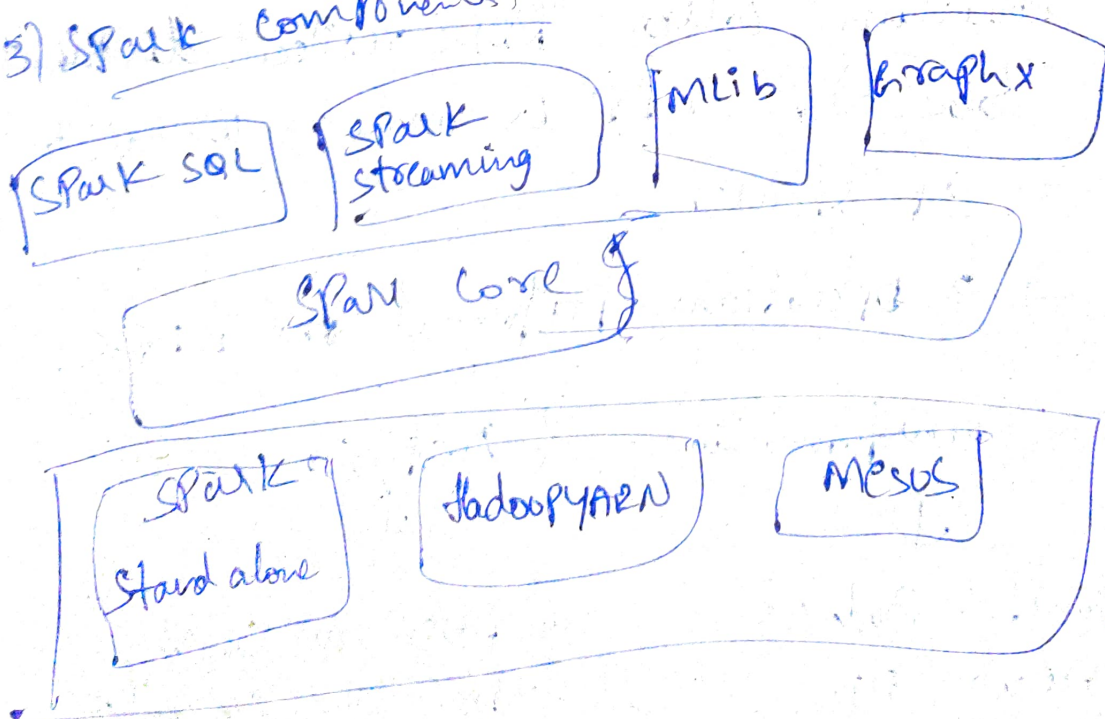 3) Spark Components
Spark SQL
Spark
streaming
MLib
Graphx
Spark Core
Spark
Stand alone
HadoopYARN
Mesos